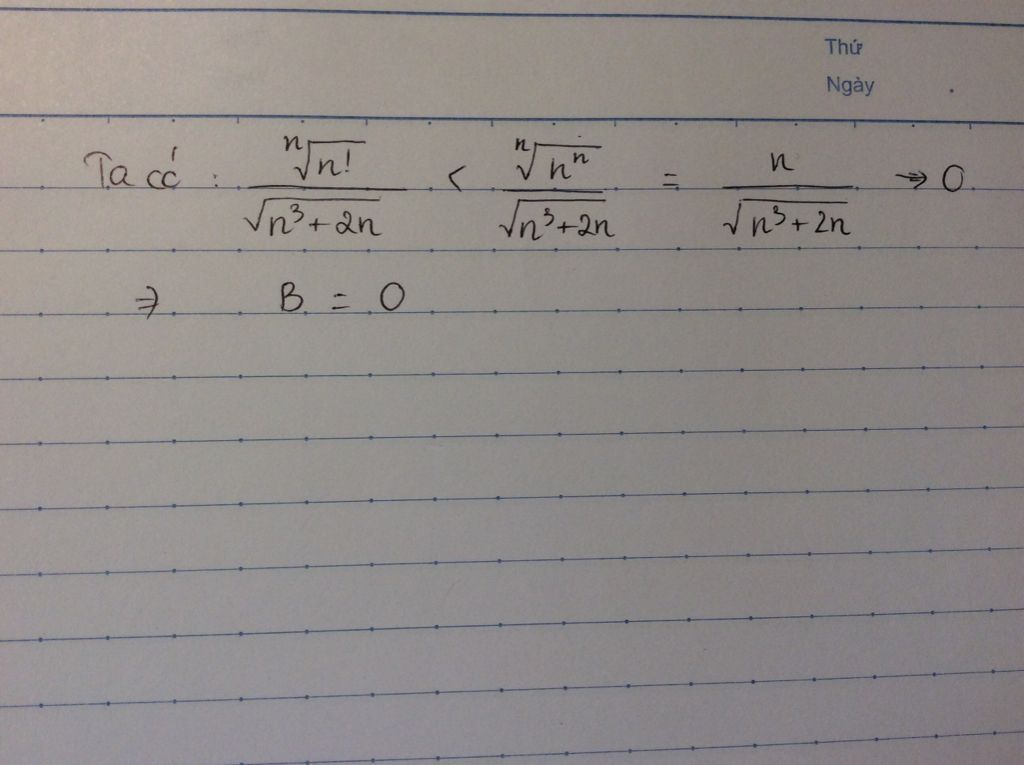 Thứ
Ngày
Ta có : \frac{\sqrt[n]{n!}}{\sqrt{n^3+2n}} < \frac{\sqrt[n]{n^n}}{\sqrt{n^3+2n}} = \frac{n}{\sqrt{n^3+2n}} → 0
⇒ B = 0